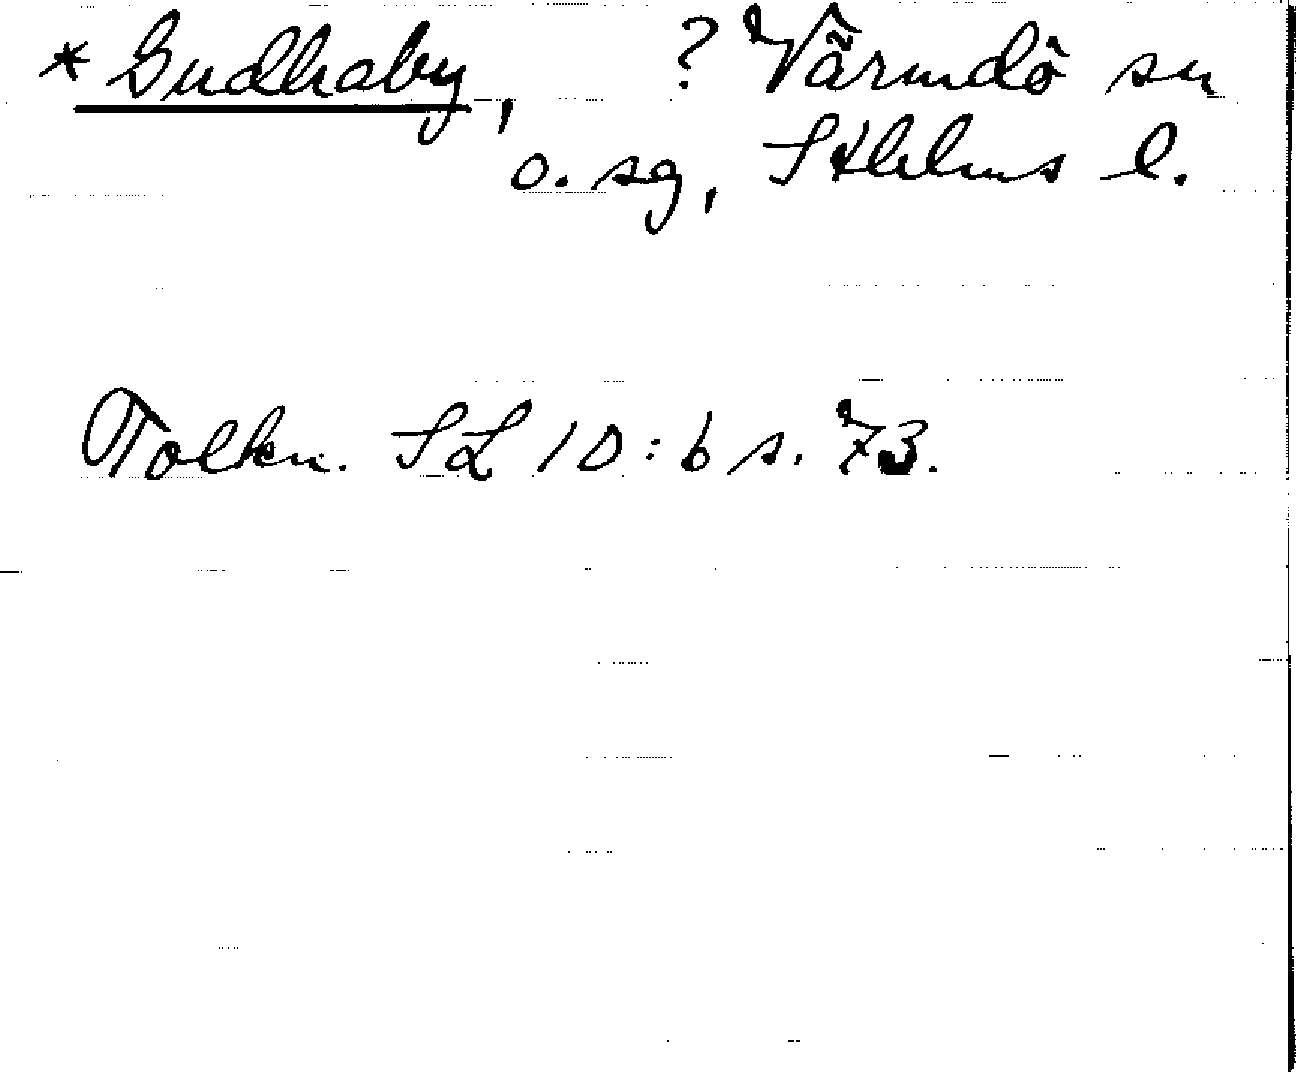 * Gudhaby, ? Värmdö sn
o. sg, Sthlms l.
Tolkn. SL 10:6 s. 73.